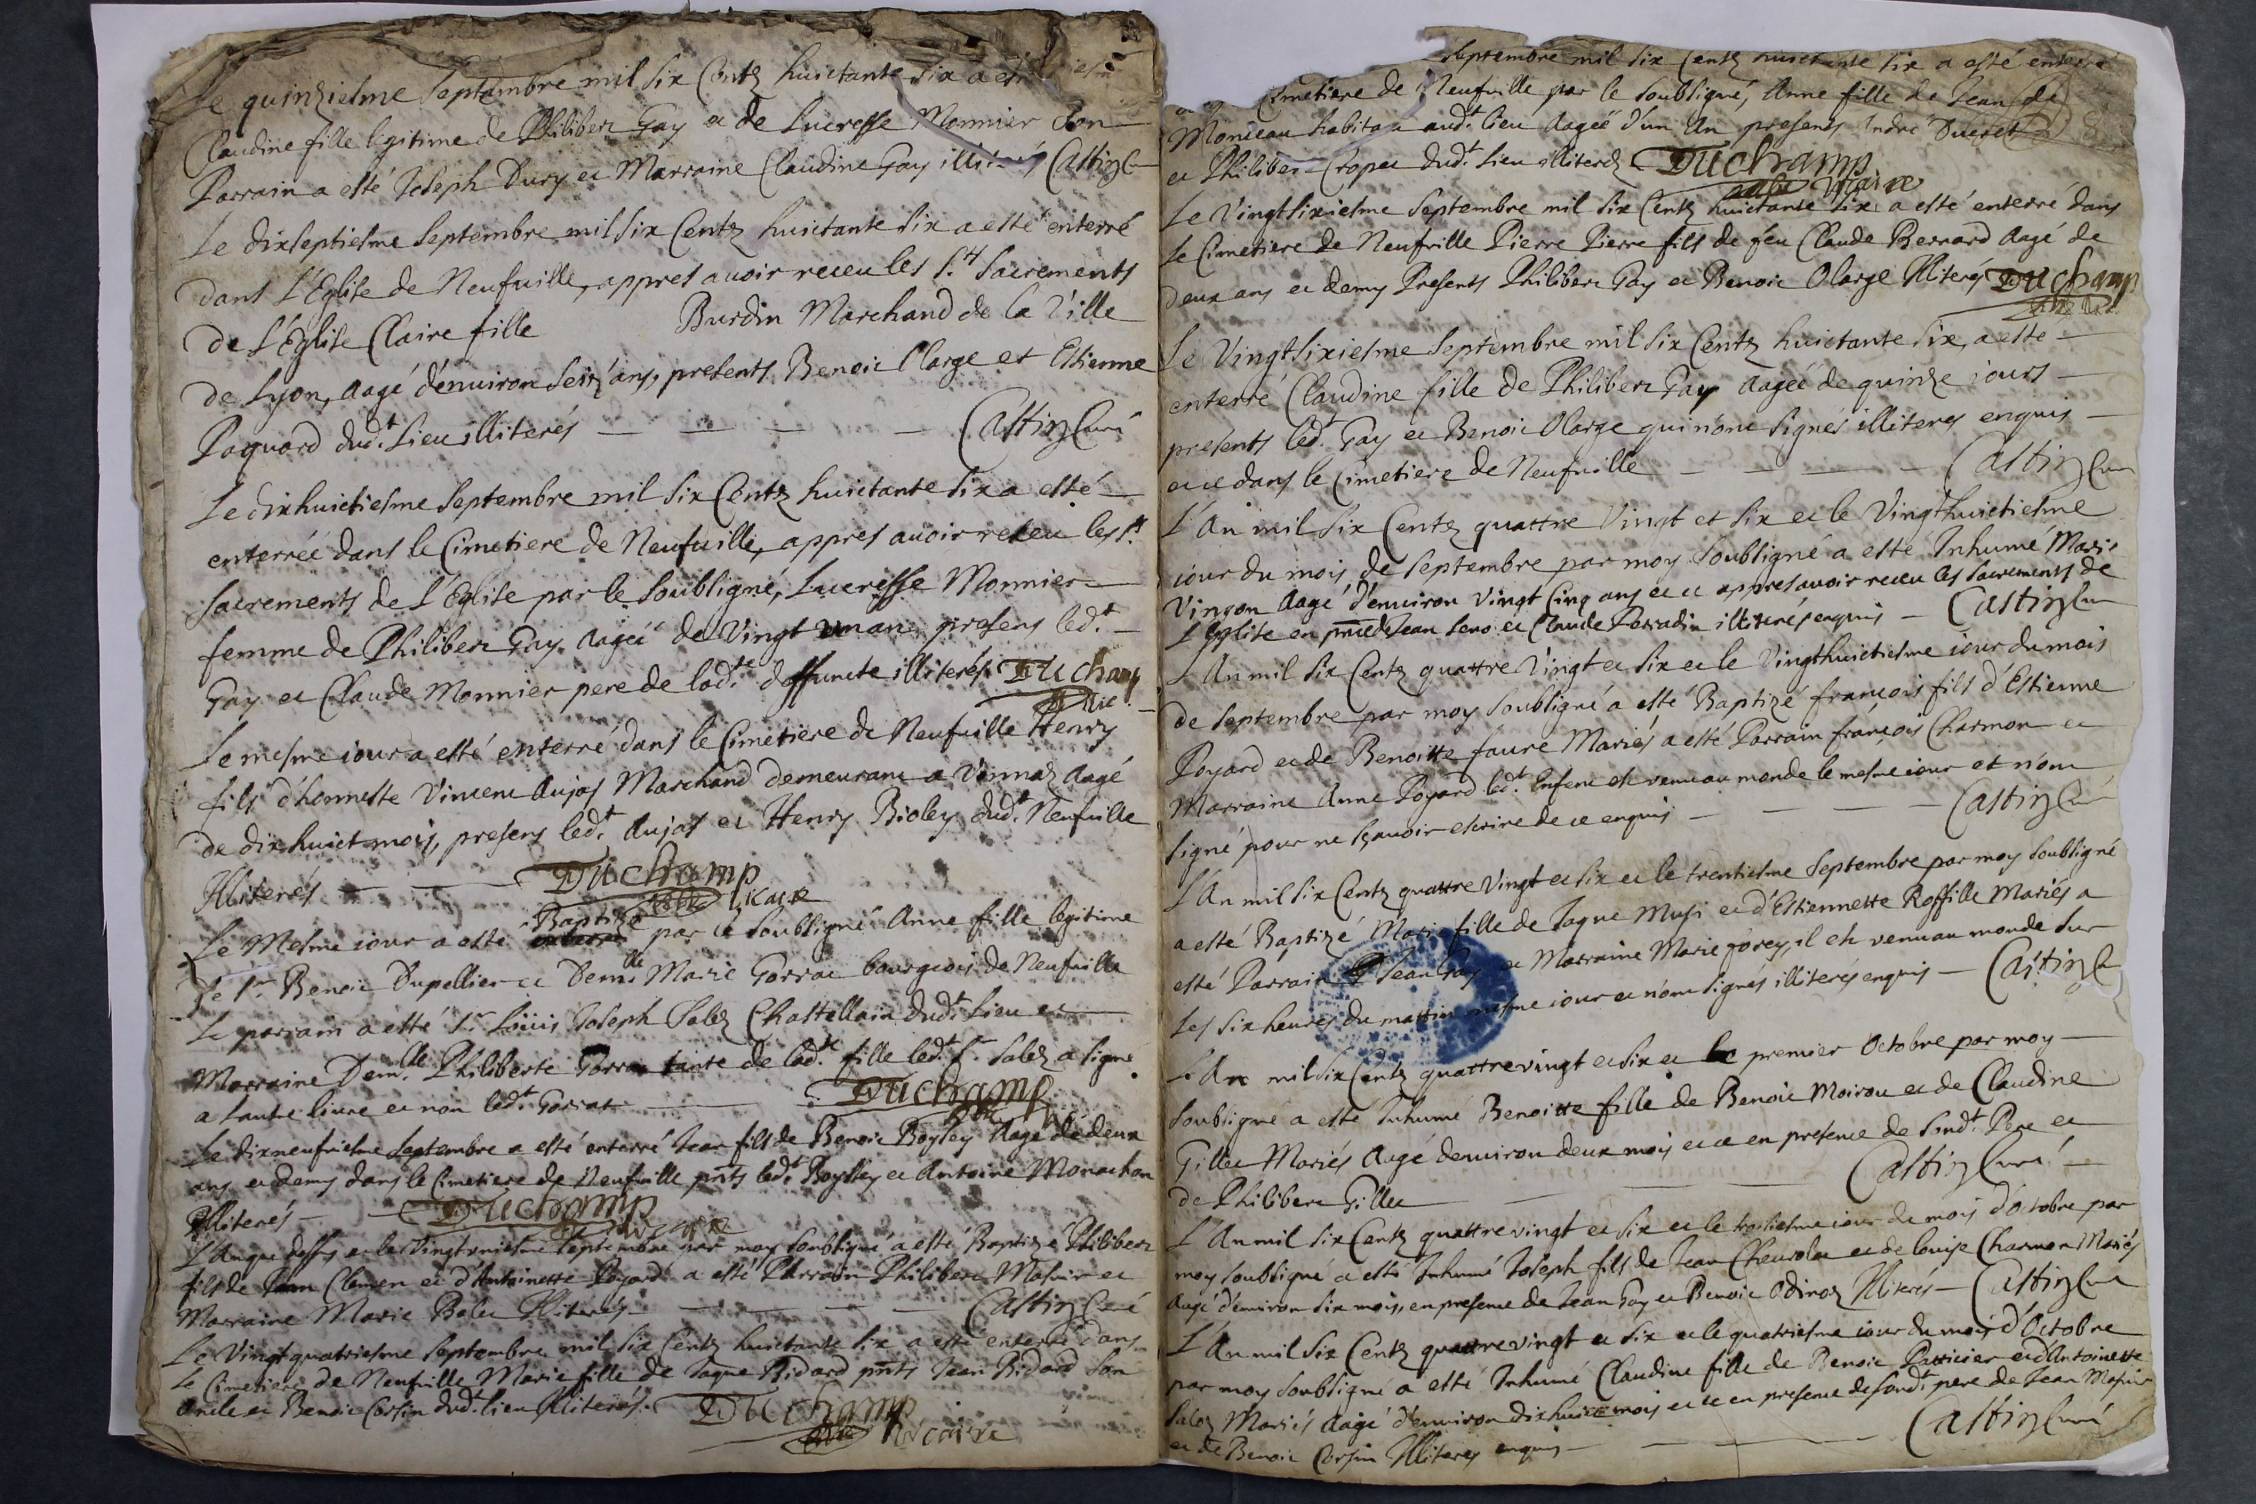 Le quinziesme Septembre mil six Centz huictante six a esté
Claudine fille legitime de Philiber Gay et de Lucresse Monnier Son
Parrain a esté Joseph Dury et Marraine Claudine Gay illiterés Castin Cu
Le dixseptiesme Septembre mil six Centz huictante six a esté enterré
dans L'Eglise de Neufuille, appres auoir receu les S.ts Sacrements
de L'Eglise Claire fille Burdin Marchand de la Ville
de Lyon, aagé d'enuiron seiz' ans, presents Benoit Olarge et Estienne
Paquard dud.t Lieu illiterés — — — — Castin Curé
Le dixhuictiesme Septembre mil six Centz huictante six a esté
enterréé dans le Cimetiere de Neufuille, appres auoir receu les S.ts
sacrements de L'Eglise par le soubsigné, Lucresse Monnier
femme de Philiber Gay aagéé de Vingt un an presens led.t
Gay et Claude Monnier pere de lad.te deffuncte illiterés Duchamp
Le mesme iour a esté enterré dans le Cimetiere de Neufuille Henry
fils d'honneste Vincent Aujas Marchand demeurant a Vonnaz aagé
de dix huict mois, presens led.t Aujas et Henry Bioley dud.t Neufuille
Illiterés — — Duchamp
Vicaire
Baptizé
Le Mesme iour a esté par le soubsigné Anne fille legitime
de S.r Benoit Dupellier et Dem.lle Marie Gorrat bourgeois de Neufuille
Le parrain a esté S.r Loüis Joseph Salez Chastellain dud.t Lieu et
Marraine Dem.lle Philiberte Gorrat tante de lad.te fille led.t S.r Salez a signé
a faute liure et non led.t Gorrat — Duchamp
Le dixneufuiesme Septembre a esté enterré Jean fils de Benoit Boysley Aagé de deux
ans et demy dans le Cimetiere de Neufuille pnts led.t Boysley et Antoine Monachon
Illiterés — Duchamp
Vicaire
L'An que dessus et le Vingtuniesme Septembre par moy soubsigné a esté Baptizé Philiber
fils de Jean Clemen et d'Antoinette Poyard a esté Parrain Philiber Masuir et
Marraine Marie Bolet Illiterés — — — — Castin Curé
Le Vingtquatriesme Septembre mil six Centz huictante six a esté enterré dans
le Cimetiere de Neufuille Marie fille de Jaque Ridard pnts Jean Ridard son
oncle et Benoit Corsin dud.t lieu Illiterés. Duchamp
Vicaire
Septembre mil six Centz huictante six a esté enterré
Cimetiere de Neufuille par le soubsigné, Anne fille de Jean de
Monceau habitan aud.t lieu aagéé d'un an presents André Ducret
et Philiber Cropet dud.t Lieu illiterés Duchamp
Vicaire
Le Vingtsixiesme Septembre mil six Centz huictante six a esté enterré dans
le Cimetiere de Neufuille Pierre Pierre fils de feu Claude Bernard Aagé de
deux ans et demy Presents Philiber Gay et Benoit Olarge Illiterés Duchamp
Le Vingtsixiesme Septembre mil six Centz huictante six, a esté —
enterré Claudine fille de Philiber Gay aagéé de quinze iours —
presents led.t Gay et Benoit Olarge qui n'ont signés illiteres enquis —
et ce dans le Cimetiere de Neufuille — — — — Castin Cu
L'An mil six Centz quattre Vingt et six et le Vingthuictiesme
iour du mois de Septembre par moy soubsigné a esté Inhumé Marie
Vinson Aagé d'enuiron Vingt Cinq ans et ce appres auoir receu les sacrements de
L'Eglise en pnce de Jean Seno et Claude Perradin illiterés enquis — Castin Cu
L'An mil six Centz quattre Vingt et six et le Vingthuictiesme iour du mois
de Septembre par moy soubsigné a esté Baptizé françois fils d'Estienne
Poyard et de Benoitte faure Mariés a esté Parrain françois Charmon et
Marraine Anne Poyard led.t Enfent est venu au monde le mesme iour et n'ont
signé pour ne sçauoir escrire de ce enquis — — — Castin Curé
L'An mil six Centz quattre Vingt et six et le trentiesme Septembre par moy soubsigné
a esté Baptizé Marie fille de Jaque Musi et d'Estiennette Roffille Mariés a
esté Parrain Jean Gay et Marraine Marie forey, il est venu au monde sur
les six heures du mattin mesme iour et n'ont signés illiterés enquis — Castin Cu
L'An mil six Centz quattrevingt et six et le premier Octobre par moy —
soubsigné a esté Inhumé Benoitte fille de Benoit Moirou et de Claudine
Gillet Mariés Aagé d'enuiron deux mois et ce en presence de sond.t Pere et
de Philiber Gillet — — — — Castin Curé —
L'An mil six Centz quattrevingt et six et le troisiesme iour du mois d'Octobre par
moy soubsigné a esté Inhumé Joseph fils de Jean Cheurolat et de Louise Charmon Mariés
Aagé d'enuiron six mois, en presence de Jean Gay et Benoit Odinoz Illiterés — Castin Cu
L'An mil six Centz quattrevingt et six et le quatriesme iour du mois d'Octobre
par moy soubsigné a esté Inhumé Claudine fille de Benoit Pattissier et d'Antoinette
Saloz Mariés Aagé d'enuiron dix huict mois et ce en presence de sond.t pere de Jean Masuir
et de Benoit Corsin Illiterés enquis — — — Castin Curé